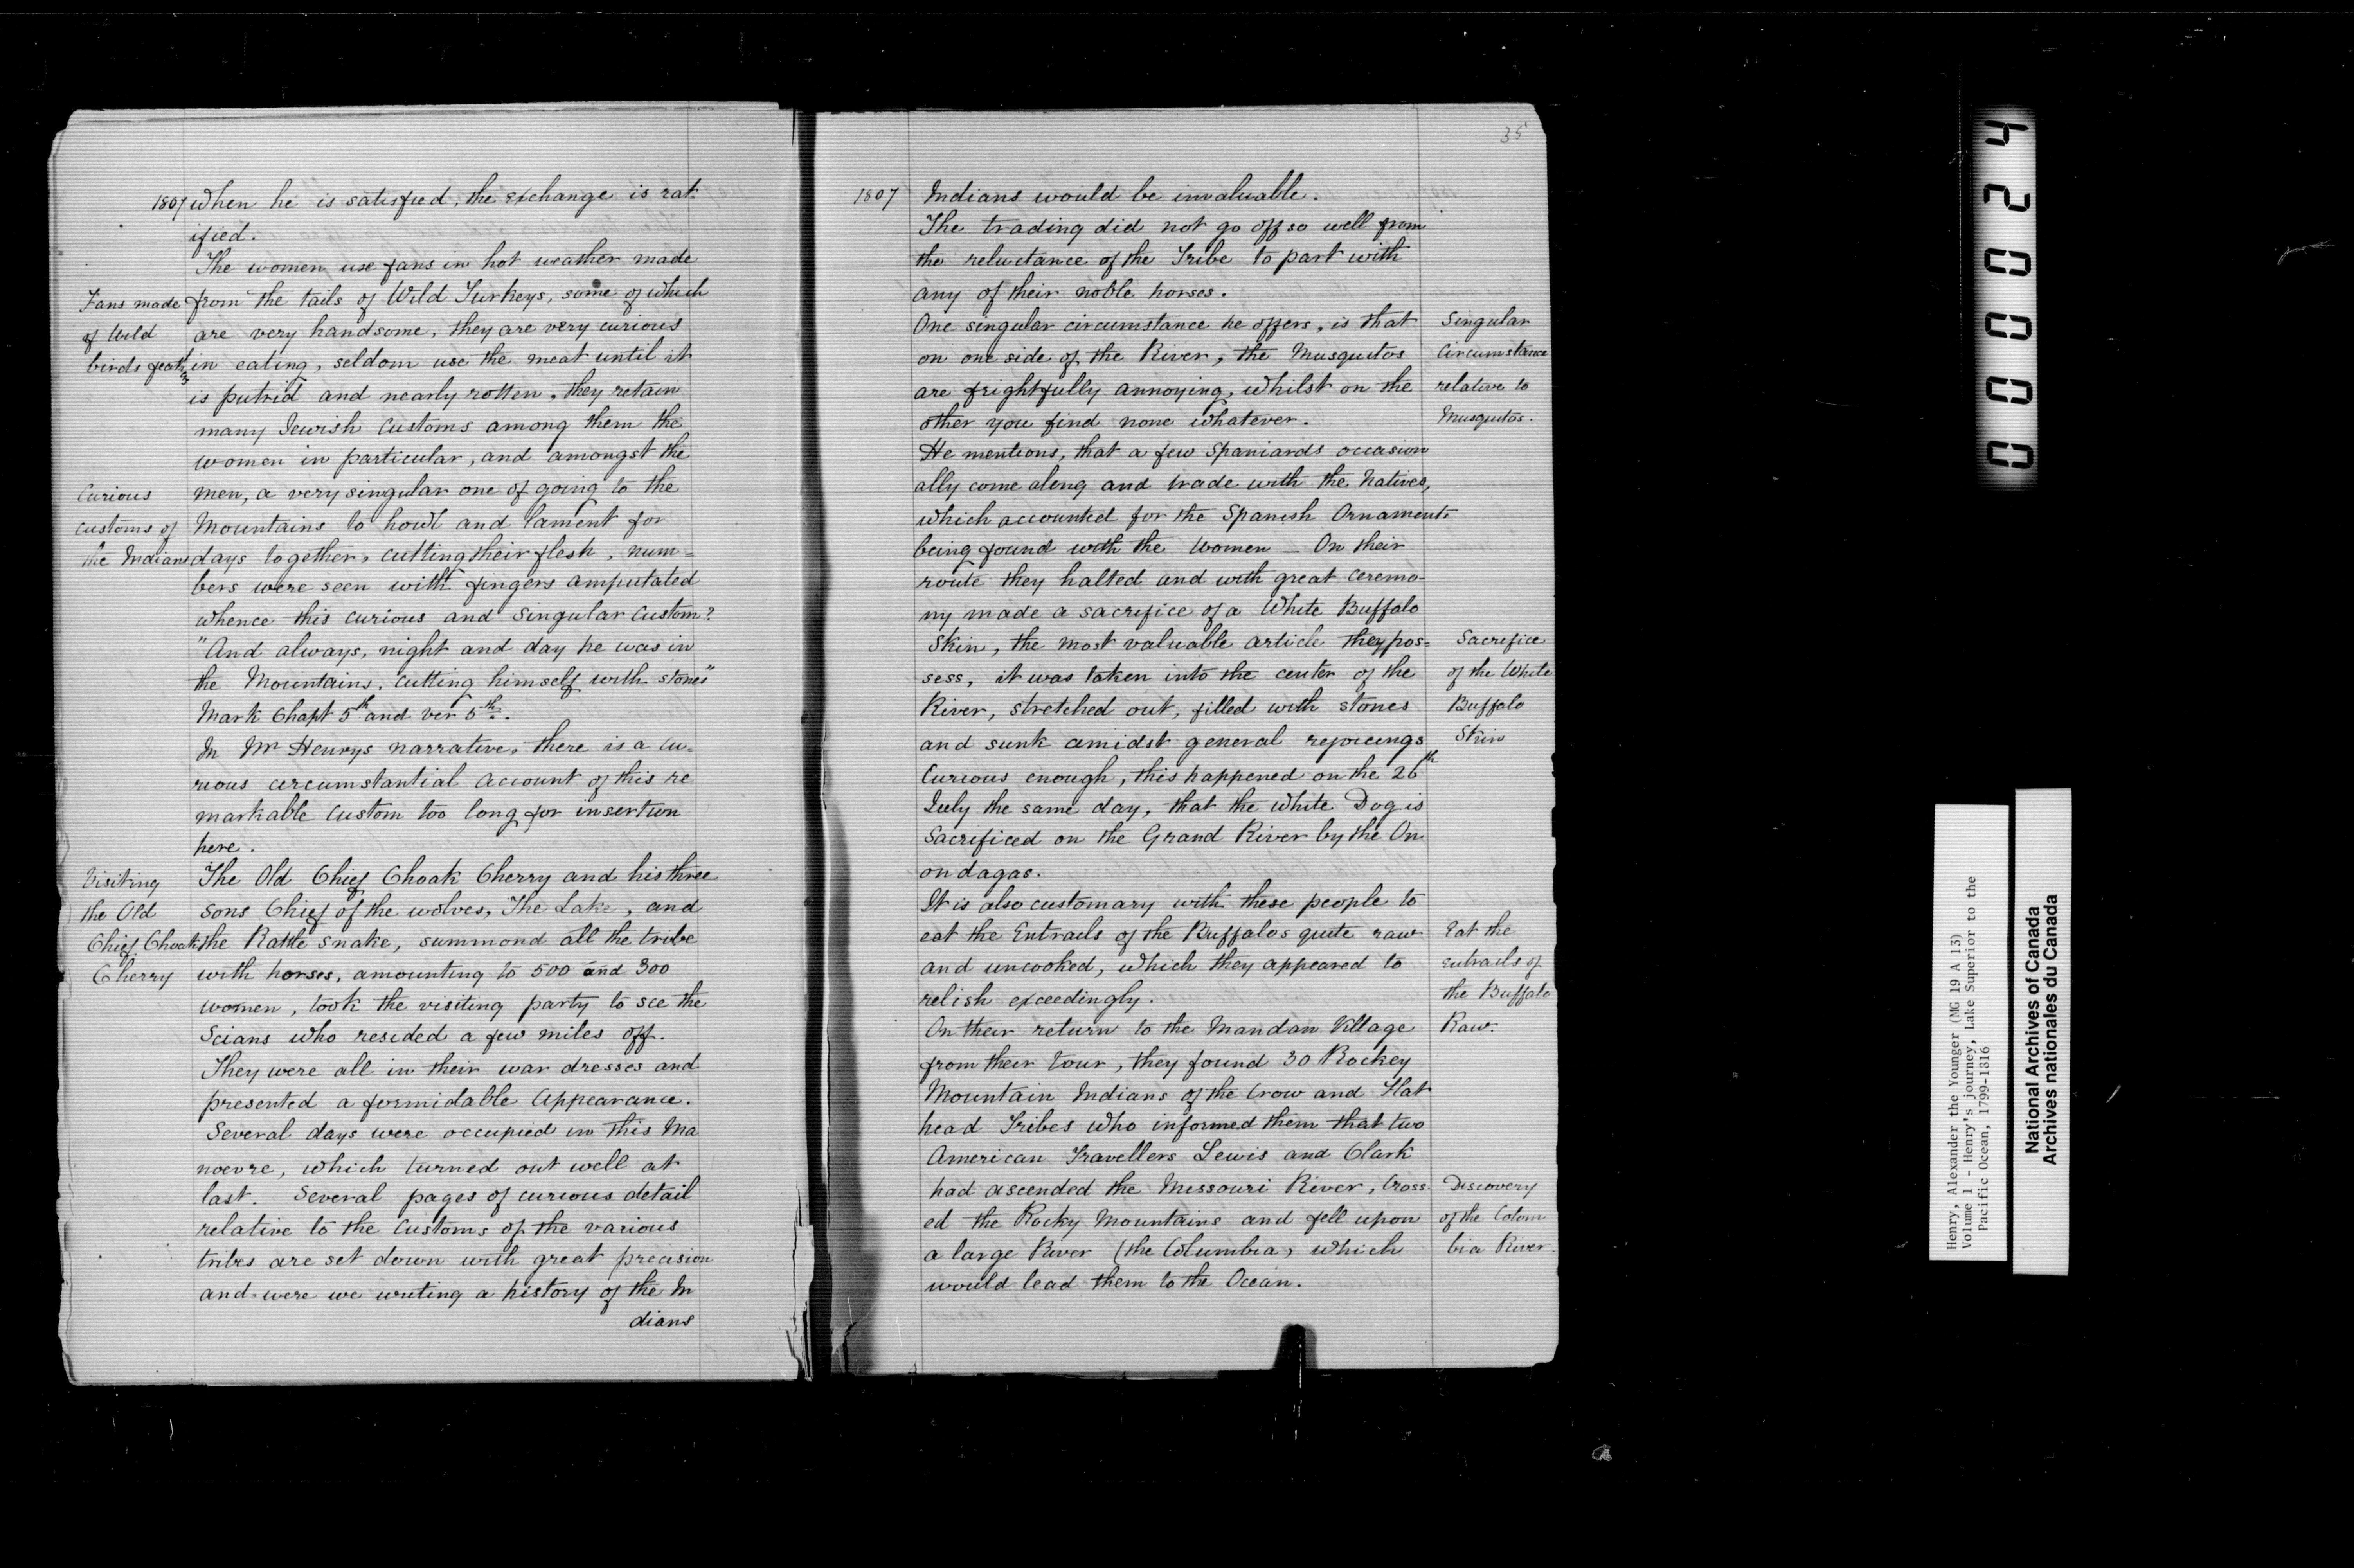 1807 When he is satisfied, the exchange is rat
ified.
The women use fans in hot weather made
Fans made
from the tails of Wild Turkeys, some of which
of Wild
are very handsome, they are very curious
birds feathrs
in eating, seldom use the meat until it
is putrid and nearly rotten, they retain
many Jewish Customs among them the
women in particular, and amongst the
Curious
men, a very singular one of going to the
customs of
Mountains to howl and lament for
the Indians
days together, cutting their flesh, num=
bers were seen with fingers amputated
whence this curious and singular custom?
"And always, night and day he was in
the Mountains, cutting himself with stones"
Mark Chapt 5th and ver 5th.
In Mr Henrys narrative, there is a cu=
rious circumstantial account of this re
markable custom too long for insertion
here.
Visiting
The Old Chief Choak Cherry and his three
the Old
sons Chief of the wolves, The Lake, and
Chief Choak
the Rattle snake, summond all the tribe
Cherry
with horses, amounting to 500 and 300
women, took the visiting party to see the
Scians who resided a few miles off.
They were all in their war dresses and
presented a formidable appearance.
Several days were occupied in this Ma
noevre, which turned out well at
last. Several pages of curious detail
relative to the customs of the various
tribes are set down with great precision
and were we writing a history of the In
dians
35
1807 Indians would be invaluable.
The trading did not go off so well from
the reluctance of the Tribe to part with
any of their noble horses.
One singular circumstance he offers, is that
Singular
on one side of the River, the Musquitos
Circumstance
are frightfully annoying, whilst on the
relative to
other you find none whatever.
Musquitos.
He mentions, that a few Spaniards occasion
ally come along and trade with the Natives,
which accounted for the Spanish Ornaments
being found with the Women — On their
route they halted and with great ceremo-
ny made a sacrifice of a White Buffalo
Skin, the most valuable article they pos=
Sacrifice
sess, it was taken into the center of the
of the White
River, stretched out, filled with stones
Buffalo
and sunk amidst general rejoicings
Skin
Curious enough, this happened on the 26th
July the same day, that the White Dog is
Sacrificed on the Grand River by the On
ondagas.
It is also customary with these people to
eat the Entrails of the Buffalos quite raw
Eat the
and uncooked, which they appeared to
entrails of
relish exceedingly.
the Buffalo
On their return to the Mandan Village
Raw.
from their tour, they found 30 Rockey
Mountain Indians of the Crow and Flat
head Tribes who informed them that two
American Travellers Lewis and Clark
had ascended the Missouri River, Cross
Discovery
ed the Rocky Mountains and fell upon
of the Colom
a large River (the Columbia, which
bia River.
would lead them to the Ocean.
000024
Henry, Alexander the Younger (MG 19 A 13)
Volume 1 - Henry's journey, Lake Superior to the
Pacific Ocean, 1799-1816
National Archives of Canada
Archives nationales du Canada